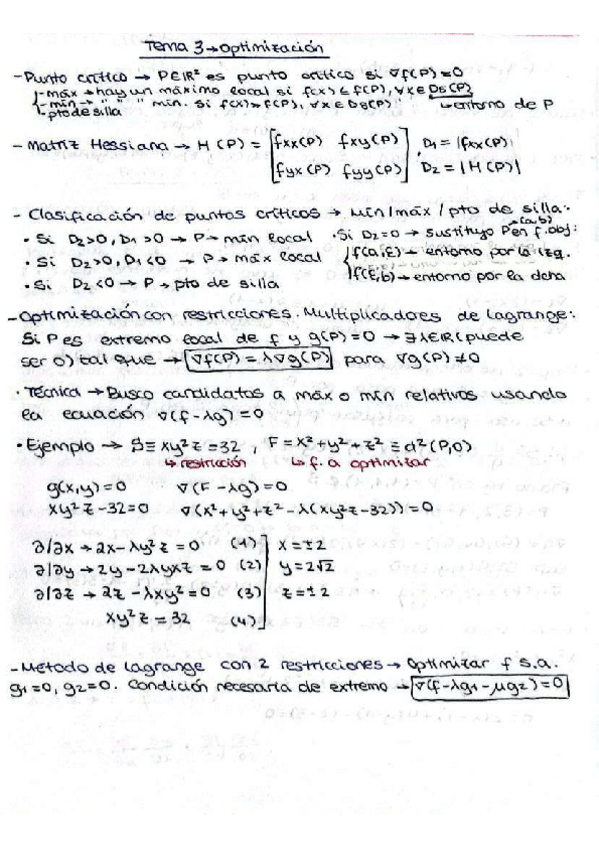 Tema 3 → Optimización
- Punto crítico → P∈ℝ² es punto crítico si ∇f(P) = 0
- máx → hay un máximo local si f(x) ≤ f(P), ∀x∈ Dδ(P)
- mín → " " " mín. si f(x) ≥ f(P), ∀x∈ Dδ(P) → entorno de P
- pto de silla
- Matriz Hessiana → H(P) = [fxx(P) fxy(P) D₁ = |fxx(P)|
fyx(P) fyy(P)] D₂ = |H(P)|
- Clasificación de puntos críticos → Mín/máx/pto de silla:
• Si D₂>0, D₁>0 → P → mín local • Si D₂=0 → sustituyo P en f. obj: → (a,b)
• Si D₂>0, D₁<0 → P → máx local { f(a,ε) → entorno por la izq.
• Si D₂<0 → P → pto de silla f(ε,b) → entorno por la dcha
- Optimización con restricciones. Multiplicadores de Lagrange:
Si P es extremo local de f y g(P)=0 → ∃λ∈ℝ (puede
ser 0) tal que → ∇f(P) = λ∇g(P) para ∇g(P) ≠ 0
• Técnica → Busco candidatos a máx o mín relativos usando
la ecuación ∇(f-λg) = 0
• Ejemplo → S ≡ xy²z = 32, F = x²+y²+z² ≡ d²(P,0)
→ restricción → f. a optimizar
g(x,y) = 0 ∇(F-λg) = 0
xy²z-32=0 ∇(x²+y²+z²-λ(xy²z-32)) = 0
∂/∂x → 2x-λy²z = 0 (1) x = ±2
∂/∂y → 2y-2λyxz = 0 (2) y = 2√2
∂/∂z → 2z-λxy² = 0 (3) z = ±2
xy²z = 32 (4)
- Método de Lagrange con 2 restricciones → Optimizar f s.a.
g₁=0, g₂=0. Condición necesaria de extremo → ∇(f-λg₁-μg₂) = 0